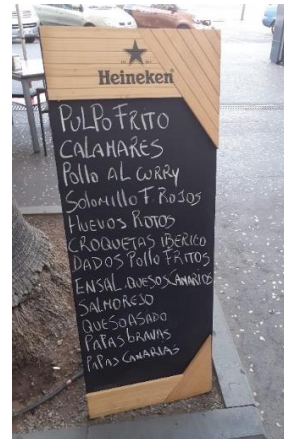 Heineken
PULPO FRITO
CALAMARES
Pollo AL CURRY
Solomillo F. ROJOS
HUEVOS ROTOS
CROQUETAS IBERICO
DADOS Pollo FRITOS
ENSAL. QUESOS CANARIOS
SALMOREJO
QUESO ASADO
PAPAS bRAVAS
PAPAS CANARIAS